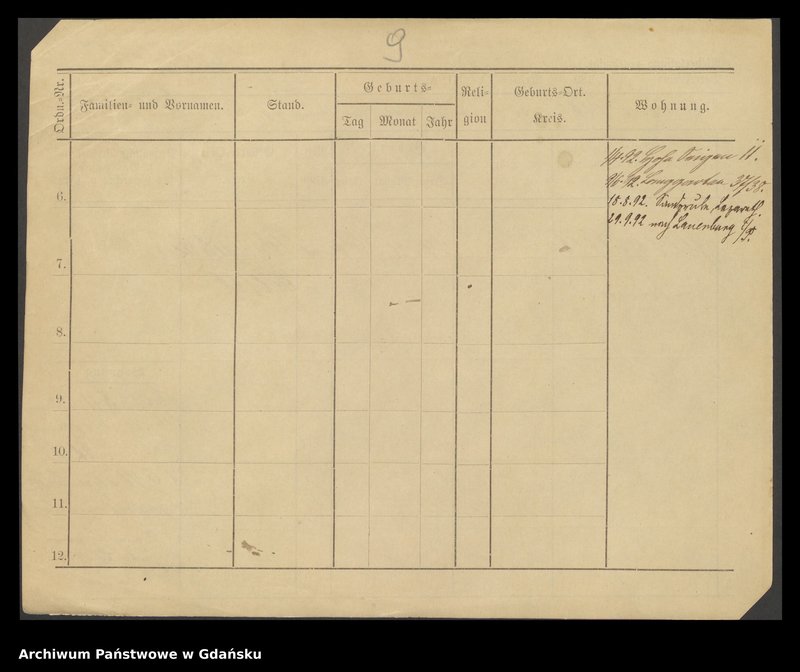 9
Ordn.=Nr.
Familien= und Vornamen.
Stand.
Geburts=
Tag
Monat
Jahr
Reli=
gion
Geburts=Ort.
Kreis.
Wohnung.
92. Hohe Seigen 11.
92. Langgarten 37/38.
18.8.92. Sandgrube, Lazareth.
29.9.92 nach Lauenburg i/P.
6.
7.
8.
9.
10.
11.
12.
Archiwum Państwowe w Gdańsku